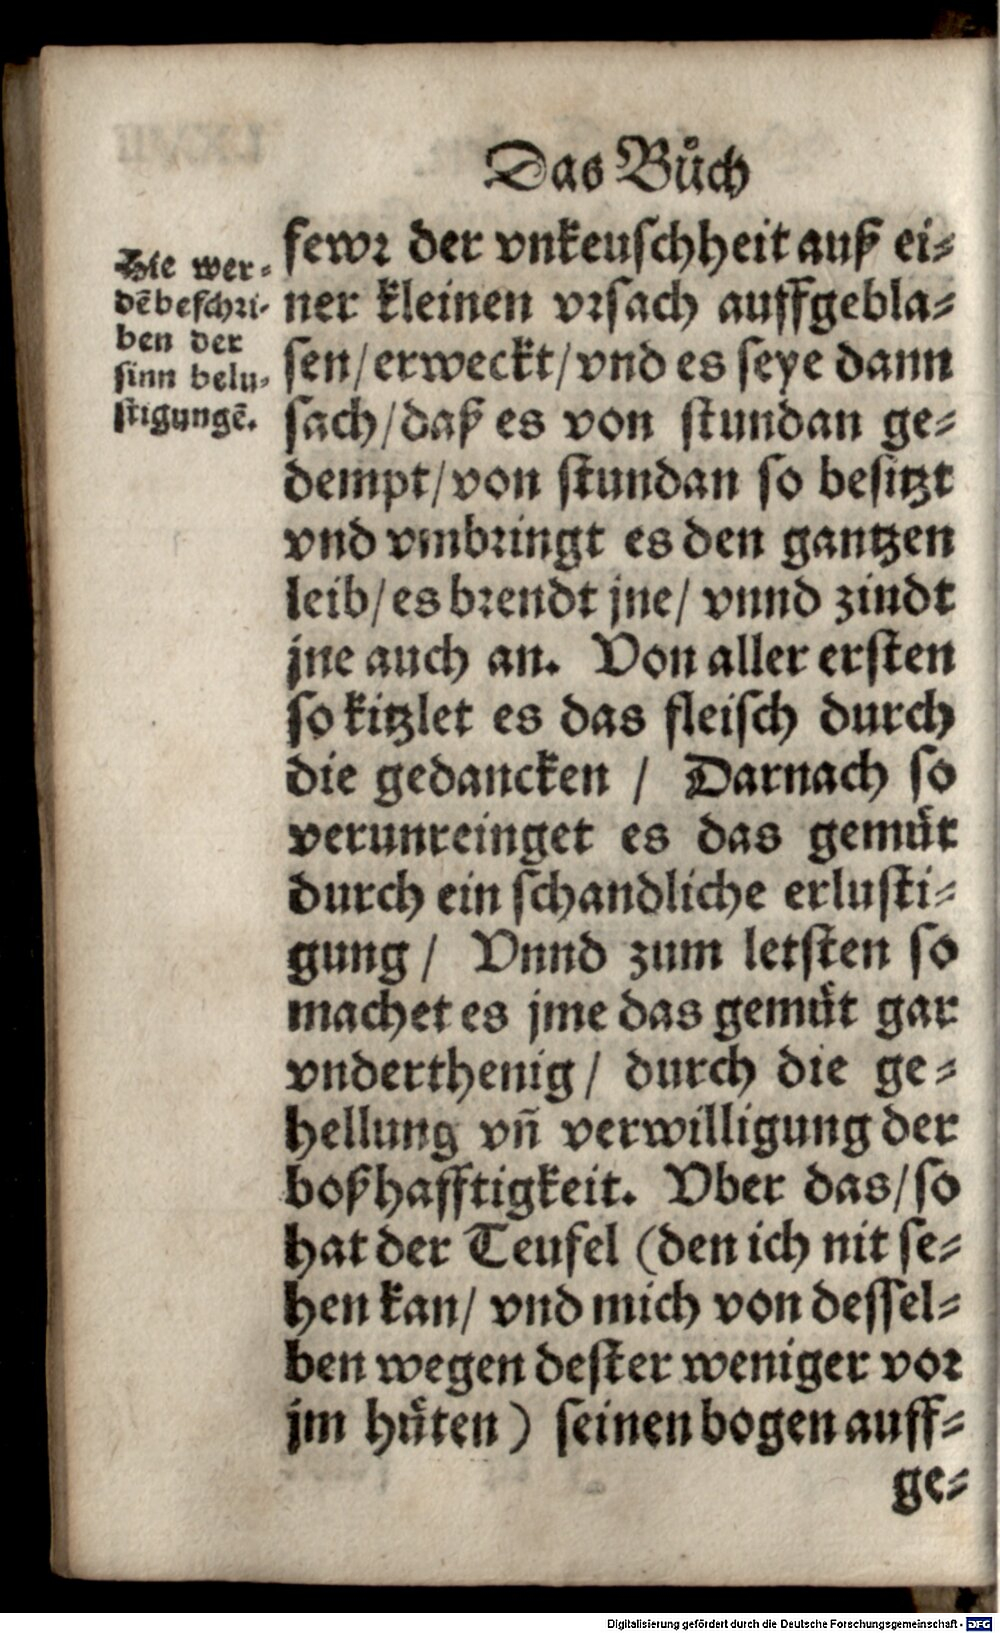 Das Bůch
Hie wer-
dẽ beschri-
ben der
sinn belu-
stigungẽ.
fewr der vnkeuschheit auß ei-
ner kleinen vrsach auffgebla-
sen/ erweckt/ vnd es seye dann
sach/ daß es von stundan ge-
dempt/ von stundan so besitzt
vnd vmbringt es den gantzen
leib/ es brendt jne/ vnnd zindt
jne auch an. Von aller ersten
so kitzlet es das fleisch durch
die gedancken / Darnach so
verunreinget es das gemüt
durch ein schandliche erlusti-
gung / Vnnd zum letsten so
machet es jme das gemüt gar
vnderthenig / durch die ge-
hellung vñ verwilligung der
boßhafftigkeit. Vber das/ so
hat der Teufel (den ich nit se-
hen kan/ vnd mich von dessel-
ben wegen dester weniger vor
jm hüten) seinen bogen auff-
ge-
Digitalisierung gefördert durch die Deutsche Forschungsgemeinschaft - DFG